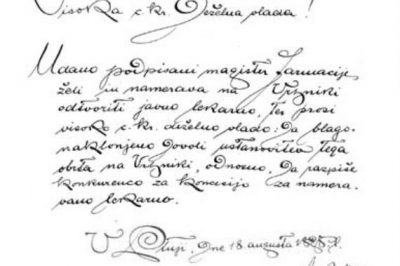 Visoka c. kr. Deželna vlada!
Udano podpisani magister farmacije
želi in namerava na Vrhniki
odtvoriti javno lekarno, ter prosi
visoko c. kr. deželno vlado: da blago-
naklonjeno dovoli ustanovitev tega
obrta na Vrhniki, odnosno, da razpiše
konkurenco za koncesijo za namera-
vano lekarno.
V Ptuji, dne 18 avgusta